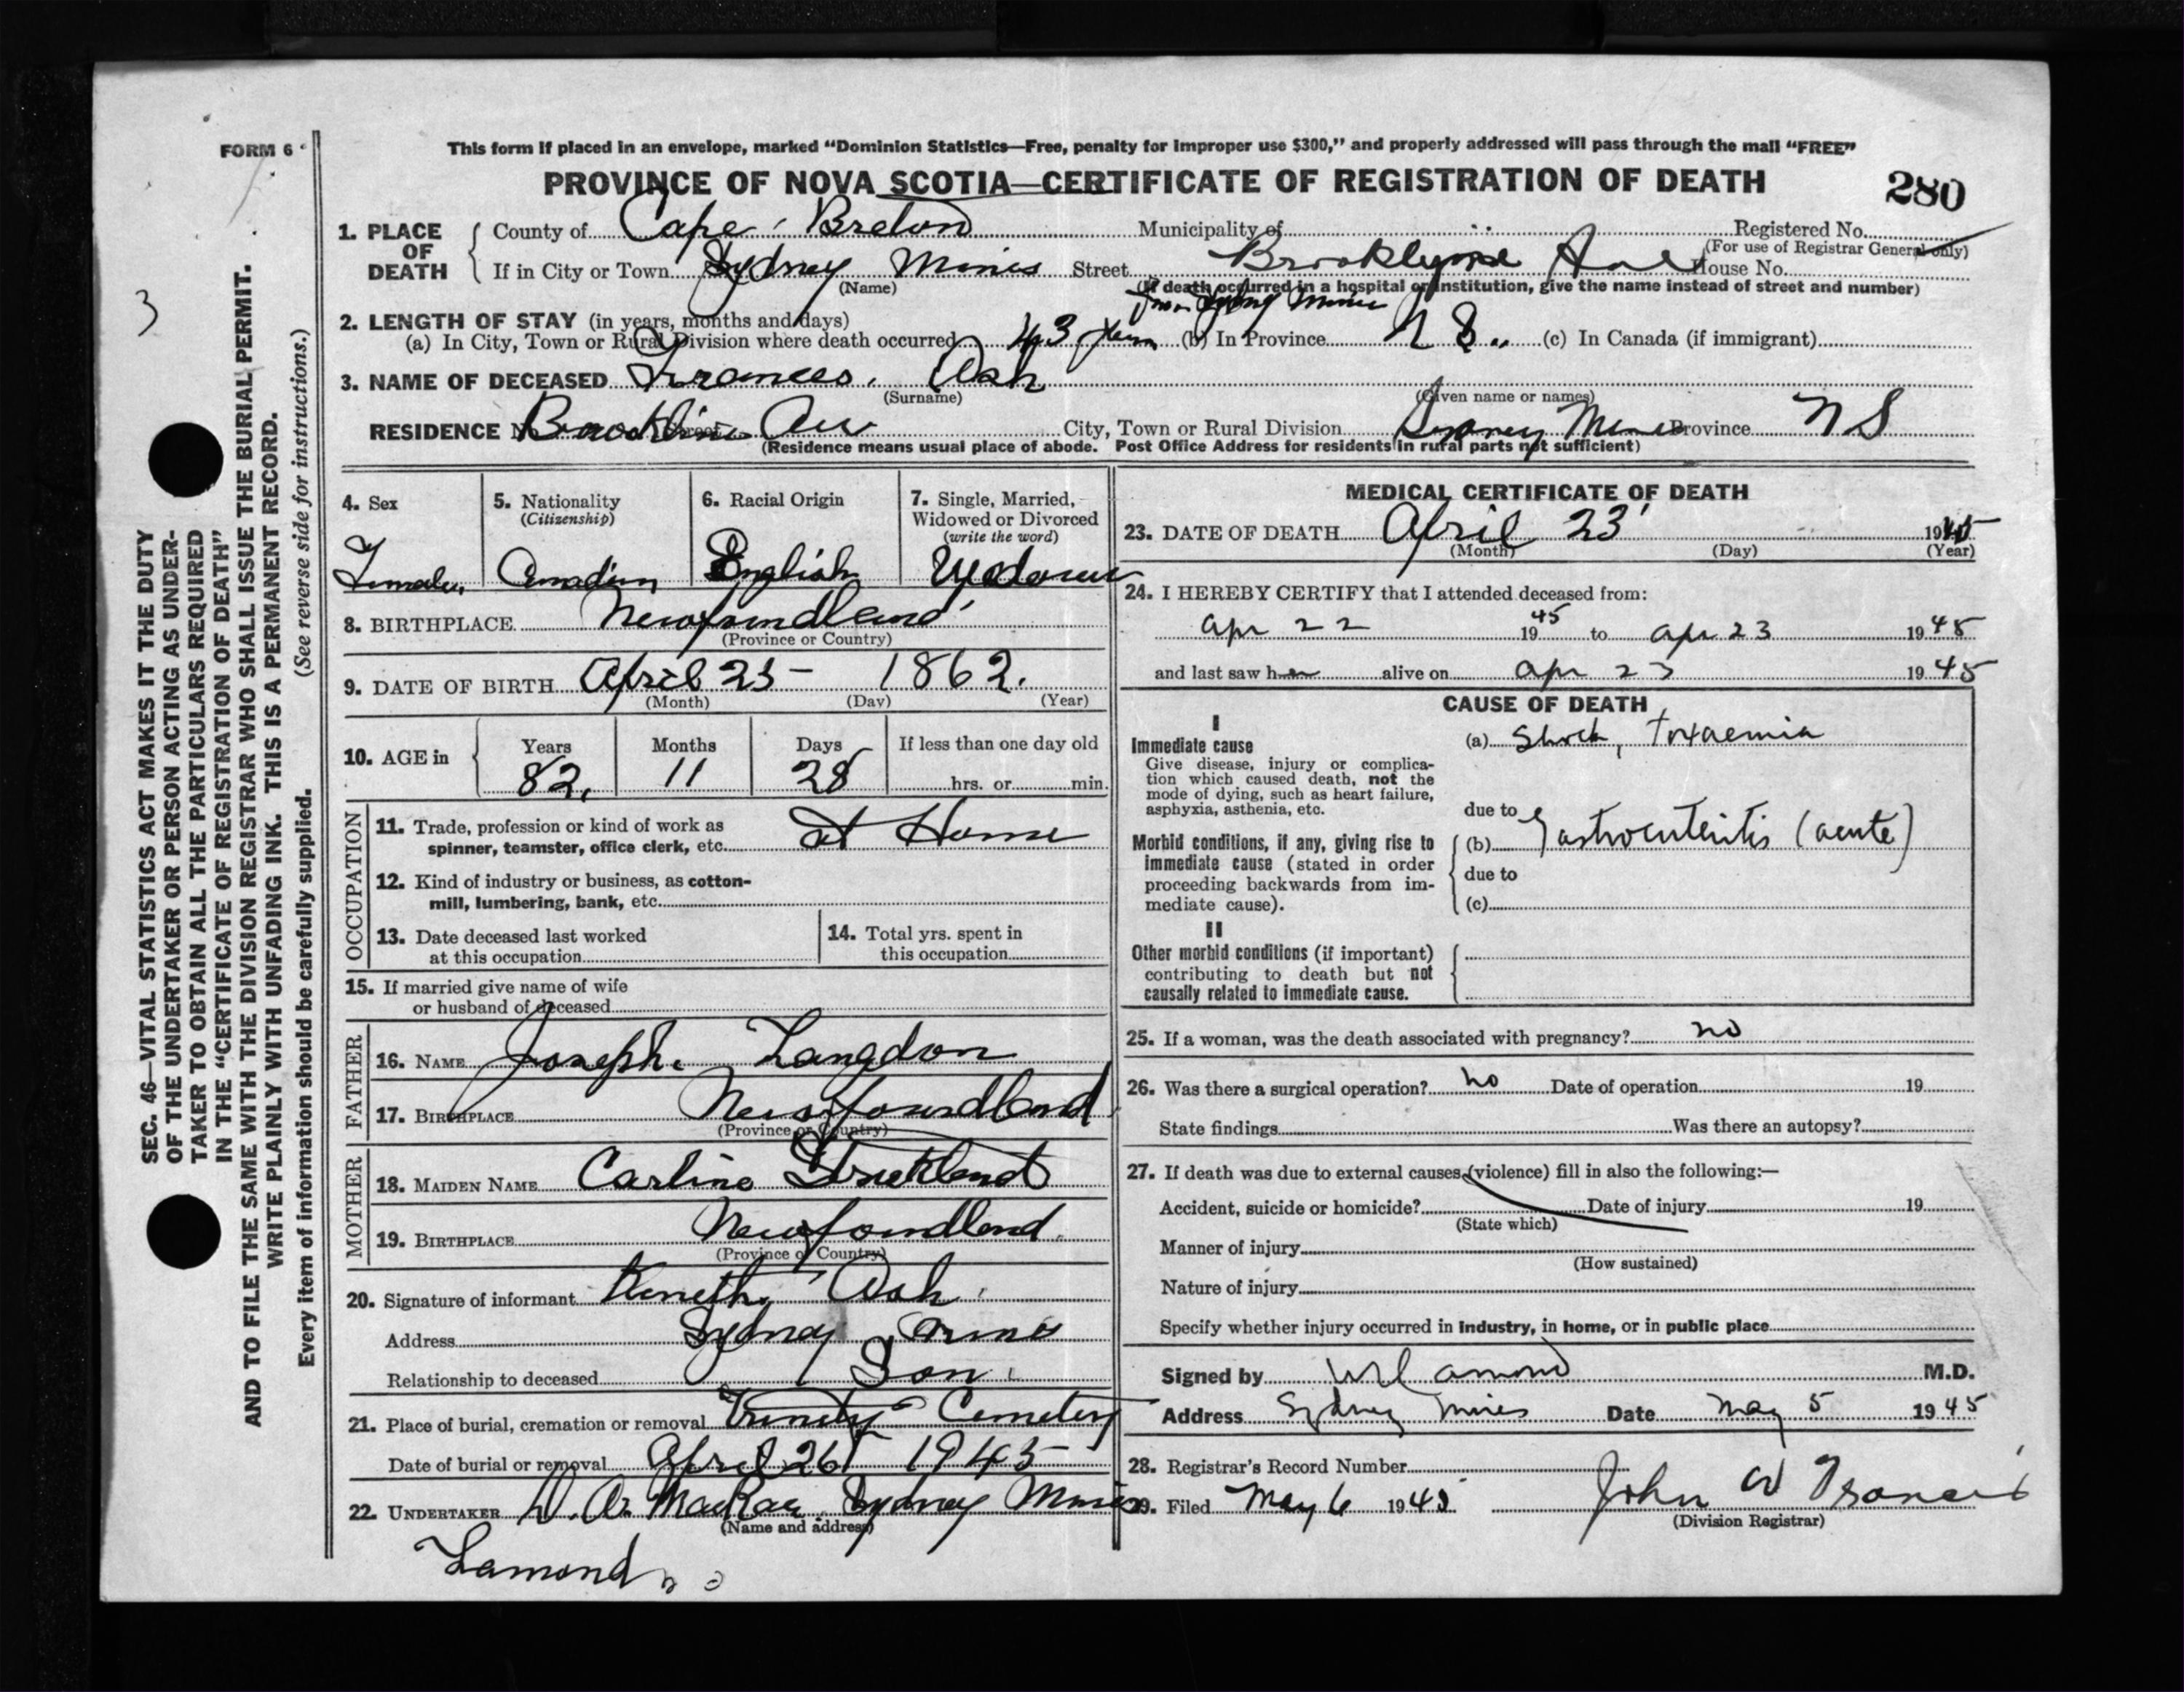 FORM 6
This form if placed in an envelope, marked “Dominion Statistics—Free, penalty for improper use $300,” and properly addressed will pass through the mail “FREE”
PROVINCE OF NOVA SCOTIA—CERTIFICATE OF REGISTRATION OF DEATH
280
1. PLACE OF DEATH
County of Cape Breton Municipality of Registered No.
(For use of Registrar General only)
If in City or Town Sydney Mines Street Brooklyne Ave House No.
(Name) (If death occurred in a hospital or institution, give the name instead of street and number)
Sydney Mines
2. LENGTH OF STAY (in years, months and days)
(a) In City, Town or Rural Division where death occurred 43 years (b) In Province N S. (c) In Canada (if immigrant)
3. NAME OF DECEASED Frances. Ash
(Surname) (Given name or names)
RESIDENCE Brookline Ave City, Town or Rural Division Sydney Mines Province N S
(Residence means usual place of abode. Post Office Address for residents in rural parts not sufficient)
4. Sex
Female
5. Nationality
(Citizenship)
Canadian
6. Racial Origin
English
7. Single, Married,
Widowed or Divorced
(write the word)
Widow
8. BIRTHPLACE Newfoundland
(Province or Country)
9. DATE OF BIRTH April 25 - 1862.
(Month) (Day) (Year)
10. AGE in
Years Months Days If less than one day old
82. 11 28 hrs. or min.
OCCUPATION
11. Trade, profession or kind of work as
spinner, teamster, office clerk, etc. at Home
12. Kind of industry or business, as cotton-
mill, lumbering, bank, etc.
13. Date deceased last worked
at this occupation
14. Total yrs. spent in
this occupation
15. If married give name of wife
or husband of deceased
FATHER
16. NAME Joseph. Langdon
17. BIRTHPLACE Newfoundland
(Province or Country)
MOTHER
18. MAIDEN NAME Carline Strickland
19. BIRTHPLACE Newfoundland.
(Province or Country)
20. Signature of informant Kenneth Ash
Address Sydney Mines
Relationship to deceased Son
21. Place of burial, cremation or removal Trinity Cemetery
Date of burial or removal April 26 1945
22. UNDERTAKER D. A. MacRae Sydney Mines
(Name and address)
Lamond
MEDICAL CERTIFICATE OF DEATH
23. DATE OF DEATH April 23 1945
(Month) (Day) (Year)
24. I HEREBY CERTIFY that I attended deceased from:
apr 22 1945 to apr 23 1945
and last saw her alive on apr 23 1945
CAUSE OF DEATH
I
Immediate cause
Give disease, injury or complica-
tion which caused death, not the
mode of dying, such as heart failure,
asphyxia, asthenia, etc.
(a) Shock, toxaemia
due to
Morbid conditions, if any, giving rise to
immediate cause (stated in order
proceeding backwards from im-
mediate cause).
(b) Gastroenteritis (acute)
due to
(c)
II
Other morbid conditions (if important)
contributing to death but not
causally related to immediate cause.
25. If a woman, was the death associated with pregnancy? no
26. Was there a surgical operation? no Date of operation 19
State findings Was there an autopsy?
27. If death was due to external causes (violence) fill in also the following:—
Accident, suicide or homicide? Date of injury 19
(State which)
Manner of injury
(How sustained)
Nature of injury
Specify whether injury occurred in industry, in home, or in public place
Signed by M.D.
Address Sydney Mines Date May 5 1945
28. Registrar's Record Number
29. Filed May 6 1945 John W Francis
(Division Registrar)
3
SEC. 46—VITAL STATISTICS ACT MAKES IT THE DUTY
OF THE UNDERTAKER OR PERSON ACTING AS UNDER-
TAKER TO OBTAIN ALL THE PARTICULARS REQUIRED
IN THE “CERTIFICATE OF REGISTRATION OF DEATH”
AND TO FILE THE SAME WITH THE DIVISION REGISTRAR WHO SHALL ISSUE THE BURIAL PERMIT.
WRITE PLAINLY WITH UNFADING INK. THIS IS A PERMANENT RECORD.
Every item of information should be carefully supplied. (See reverse side for instructions.)